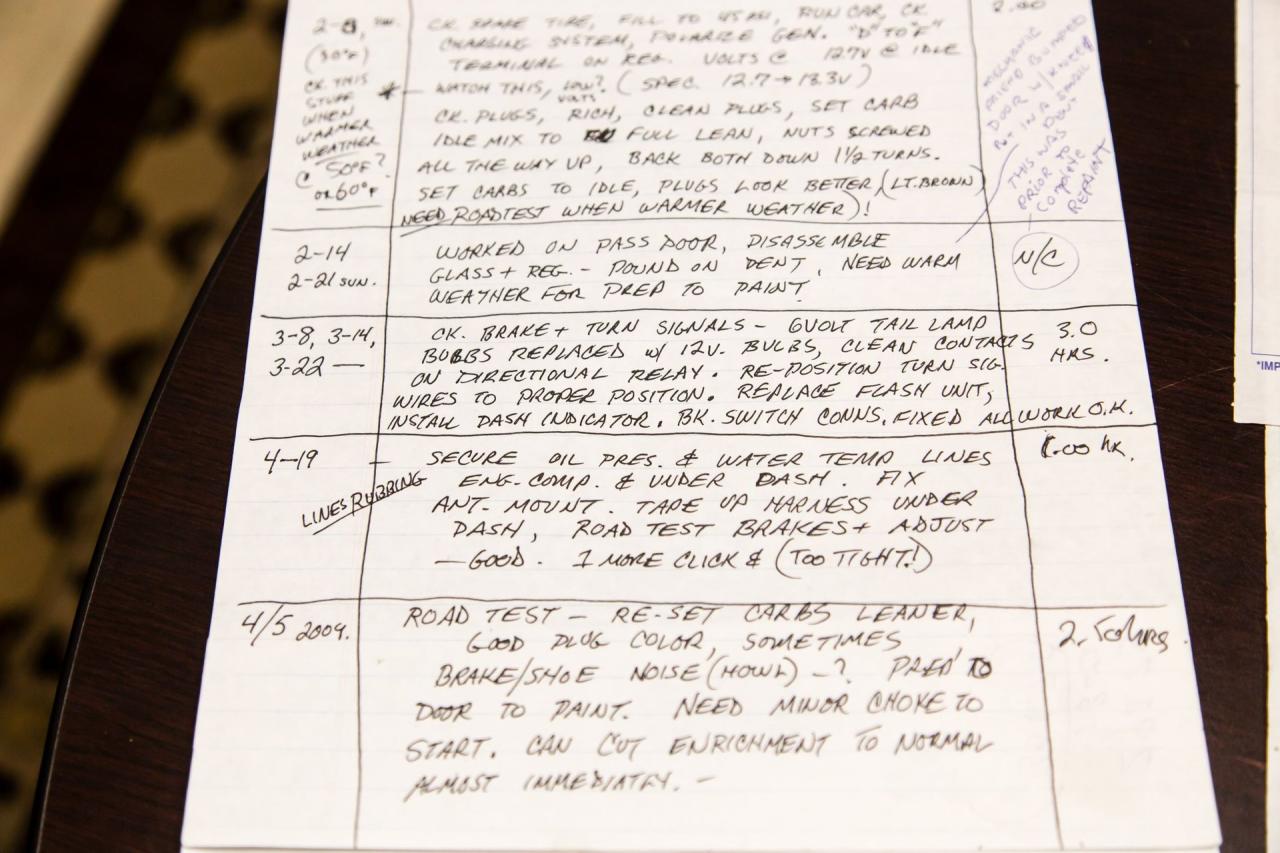 2-8, SUN.
(30°F)
CK. THIS
STUFF
WHEN
WARMER
WEATHER
@ 50°F?
OR 60°F
CK. SPARE TIRE, FILL TO 45 PSI, RUN CAR, CK
CHARGING SYSTEM, POLARIZE GEN. "D" TO "F"
TERMINAL ON REG. VOLTS @ 12.7V @ IDLE
* — WATCH THIS, LOW? VOLTS (SPEC. 12.7 → 13.3V)
CK. PLUGS, RICH, CLEAN PLUGS, SET CARB
IDLE MIX TO FULL LEAN, NUTS SCREWED
ALL THE WAY UP, BACK BOTH DOWN 1 1/2 TURNS.
SET CARBS TO IDLE, PLUGS LOOK BETTER, (LT. BROWN)
NEED ROADTEST WHEN WARMER WEATHER)!
2.00
MECHANIC
FRIEND BUMPED
DOOR W/ KNEE &
PUT IN A SMALL
DENT
THIS WAS
PRIOR TO
COMPLETE
REPAINT
2-14
2-21 SUN.
WORKED ON PASS DOOR, DISASSEMBLE
GLASS + REG. - POUND ON DENT, NEED WARM
WEATHER FOR PREP TO PAINT
N/C
3-8, 3-14,
3-22 —
CK. BRAKE + TURN SIGNALS - 6VOLT TAIL LAMP
BULBS REPLACED W/ 12V. BULBS, CLEAN CONTACTS
ON DIRECTIONAL RELAY. RE-POSITION TURN SIG.
WIRES TO PROPER POSITION. REPLACE FLASH UNIT,
INSTALL DASH INDICATOR. BK. SWITCH CONNS. FIXED ALL WORK O.K.
3.0
HRS.
4-19
LINES RUBBING
— SECURE OIL PRES. & WATER TEMP LINES
ENG. COMP. & UNDER DASH. FIX
ANT. MOUNT. TAPE UP HARNESS UNDER
DASH, ROAD TEST BRAKES + ADJUST
— GOOD. 1 MORE CLICK & (TOO TIGHT!)
1.00 hr.
4/5 2009.
ROAD TEST — RE-SET CARBS LEANER,
GOOD PLUG COLOR, SOMETIMES
BRAKE/SHOE NOISE (HOWL) -? PREP TO
DOOR TO PAINT. NEED MINOR CHOKE TO
START. CAN CUT ENRICHMENT TO NORMAL
ALMOST IMMEDIATELY. —
2.50 hrs.
*IMP